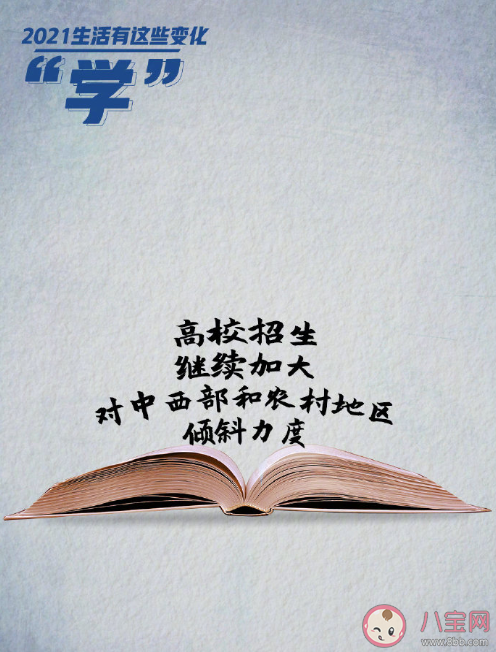 2021生活有这些变化
“学”
高校招生
继续加大
对中西部和农村地区
倾斜力度
八宝网
www.8bb.com